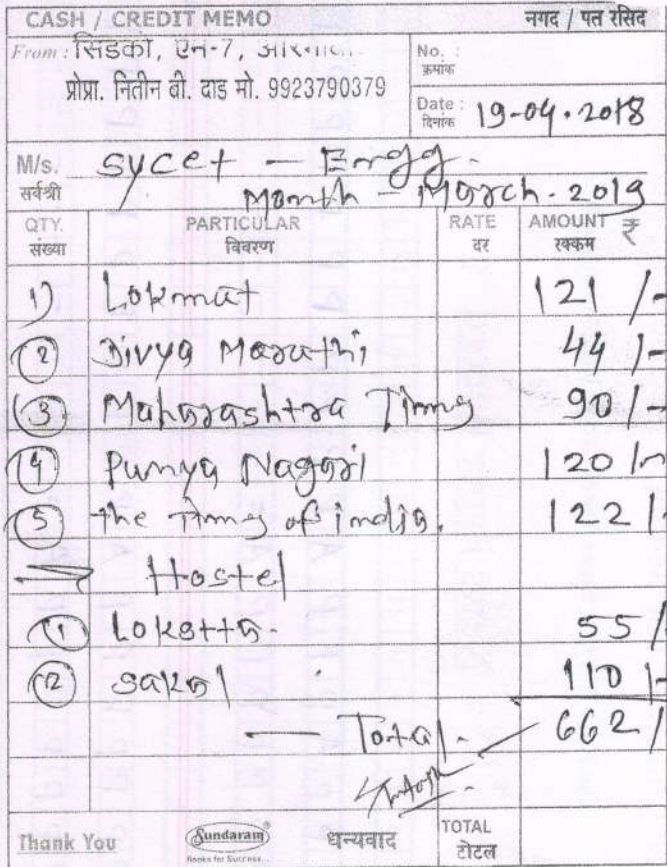 CASH / CREDIT MEMO नगद / पत रसिद
From : सिडको, एन-7,
प्रोप्रा. नितीन बी. दाड मो. 9923790379
No. :
क्रमांक
Date : 19-04.2018
दिनांक
M/s. sycet - Engg.
सर्वश्री Month - March - 2019
QTY. PARTICULAR RATE AMOUNT ₹
संख्या विवरण दर रक्कम
1) Lokmat 121 /-
2 Divya Marathi 44 /-
3 Maharashtra Times 90 /-
4 Punya Nagari 120 /-
5 the Times of india. 122 /-
→ Hostel
1 Loksatta 55 /
2 sakal 110 /-
— Total - 662 /
Thank You Sundaram धन्यवाद TOTAL
Books for Success... टोटल